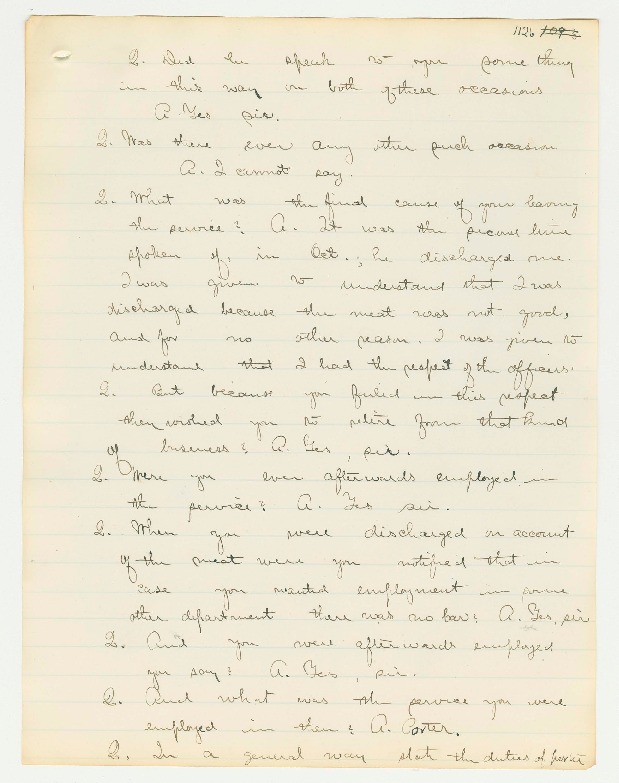 1126 1095
Q. Did he speak to you some thing
in this way on both of these occasions
A Yes sir.
Q. Was there ever any other such occasion
A. I cannot say.
Q. What was the final cause of your leaving
the service? A. It was the second time
spoken of, in Oct.; he discharged me.
I was given to understand that I was
discharged because the meat was not good,
and for no other reason. I was given to
understand that I had the respect of the officers.
Q. But because you failed in this respect
they wished you to retire from that kind
of business? A. Yes, sir.
Q. Were you ever afterwards employed in
the service? A. Yes sir.
Q. When you were discharged on account
of the meat were you notified that in
case you wanted employment in some
other department there was no bar? A. Yes, sir
Q. And you were afterwards employed
you say? A. Yes, sir.
Q. And what was the service you were
employed in then? A. Porter.
Q. In a general way state the duties of porter